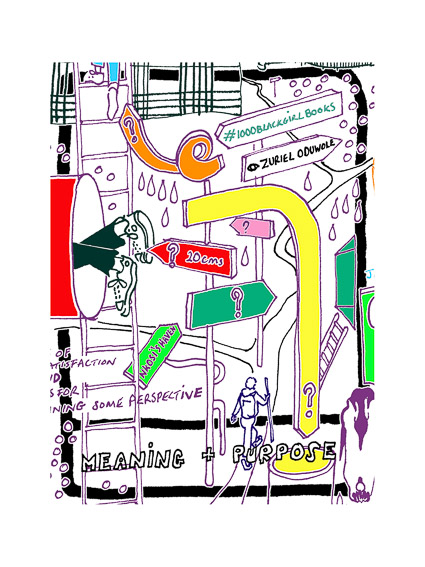 ?
#1000BLACKGIRLBOOKS
ZURIEL ODUWOLE
?
? 20cms
?
NKOSI'S HAVEN
OF
TISFACTION
FOR
NING SOME PERSPECTIVE
?
MEANING + PURPOSE